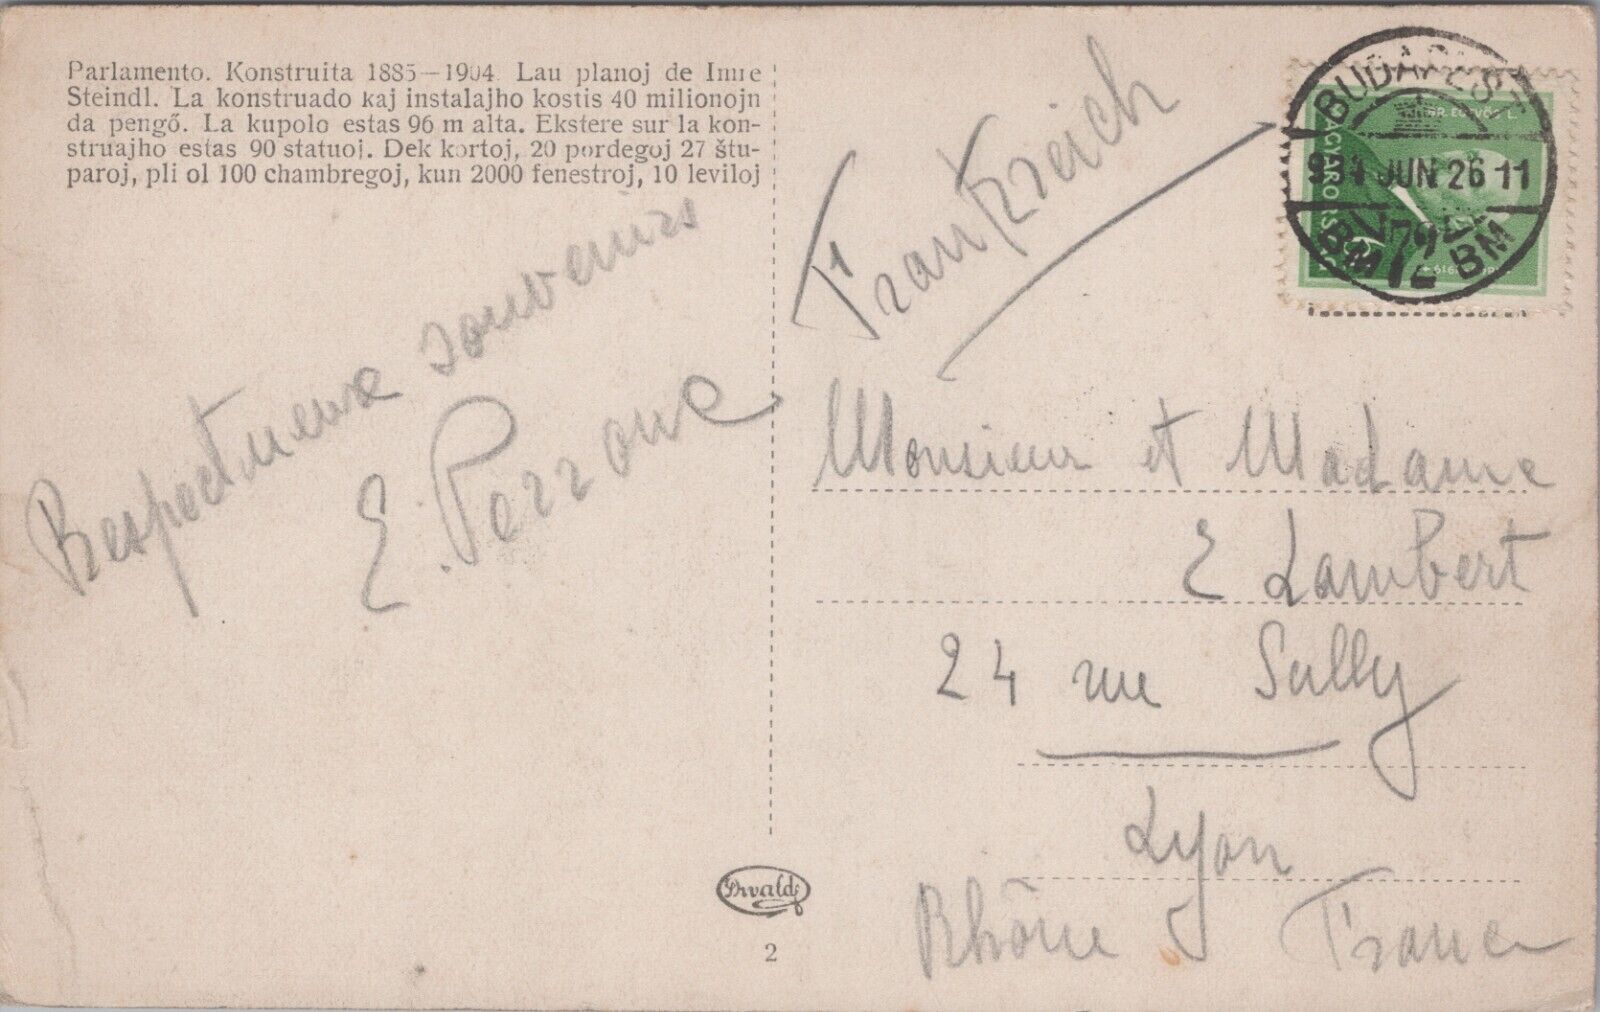 Parlamento. Konstruita 1885—1904. Lau planoj de Imre
Steindl. La konstruado kaj instalajho kostis 40 milionojn
da pengő. La kupolo estas 96 m alta. Ekstere sur la kon-
struajho estas 90 statuoj. Dek kortoj, 20 pordegoj 27 ŝtu-
paroj, pli ol 100 chambregoj, kun 2000 fenestroj, 10 leviloj
Respectueux souvenirs
E. Perrone
Frankreich
BUDAPEST
934 JUN 26 11
79
Monsieur et Madame
E Lambert
24 rue Sully
Lyon
Rhône France
2